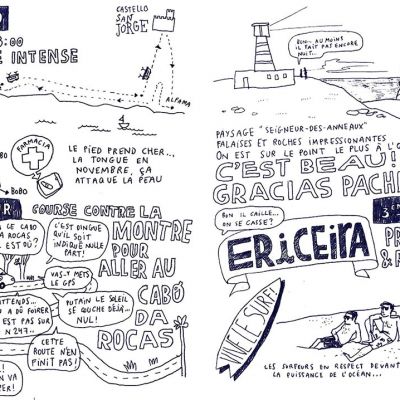 CASTELLO
SAN
JORGE
:00
INTENSE
ALFAMA
FARMACIA
BOBO
BOBO
LE PIED PREND CHER...
LA TONGUE EN
NOVEMBRE, ÇA
ATTAQUE LA PEAU
COURSE CONTRE LA
MONTRE
POUR
ALLER AU
CABO
DA
ROCAS
LE CABO
ROCAS
EST OÙ ?
C'EST DINGUE
QU'IL SOIT
INDIQUÉ NULLE
PART!
VAS-Y METS
LE GPS
ATTENDS...
A DÛ FOIRER
EST PAS SUR
N 247...
PUTAIN LE SOLEIL
SE COUCHE DÉJÀ...
NUL!
CETTE
ROUTE N'EN
FINIT PAS!
VA
BON... AU MOINS
IL FAIT PAS ENCORE
NUIT...
PAYSAGE "SEIGNEUR-DES-ANNEAUX"
FALAISES ET ROCHES IMPRESSIONANTES
ON EST SUR LE POINT LE PLUS À L'O
C'EST BEAU!
GRACIAS PACH
BON IL CAILLE...
ON SE CASSE?
ERICEIRA
3
PR
&
VIVE LE SURF!
LES SURFEURS EN RESPECT DEVANT
LA PUISSANCE DE L'OCÉAN...